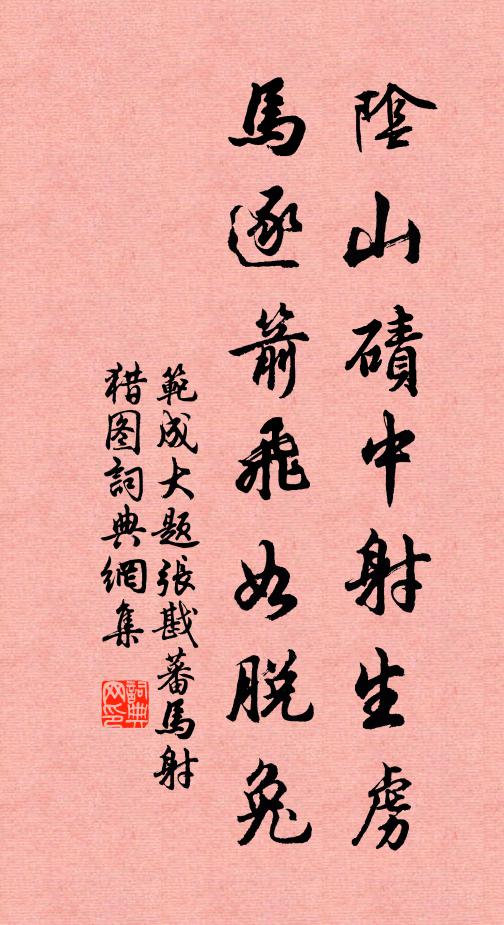 陰山磧中射生虜
馬逐箭飛如脫兔
範成大题張戡蕃馬射
猎图詞典網集
詞典网印